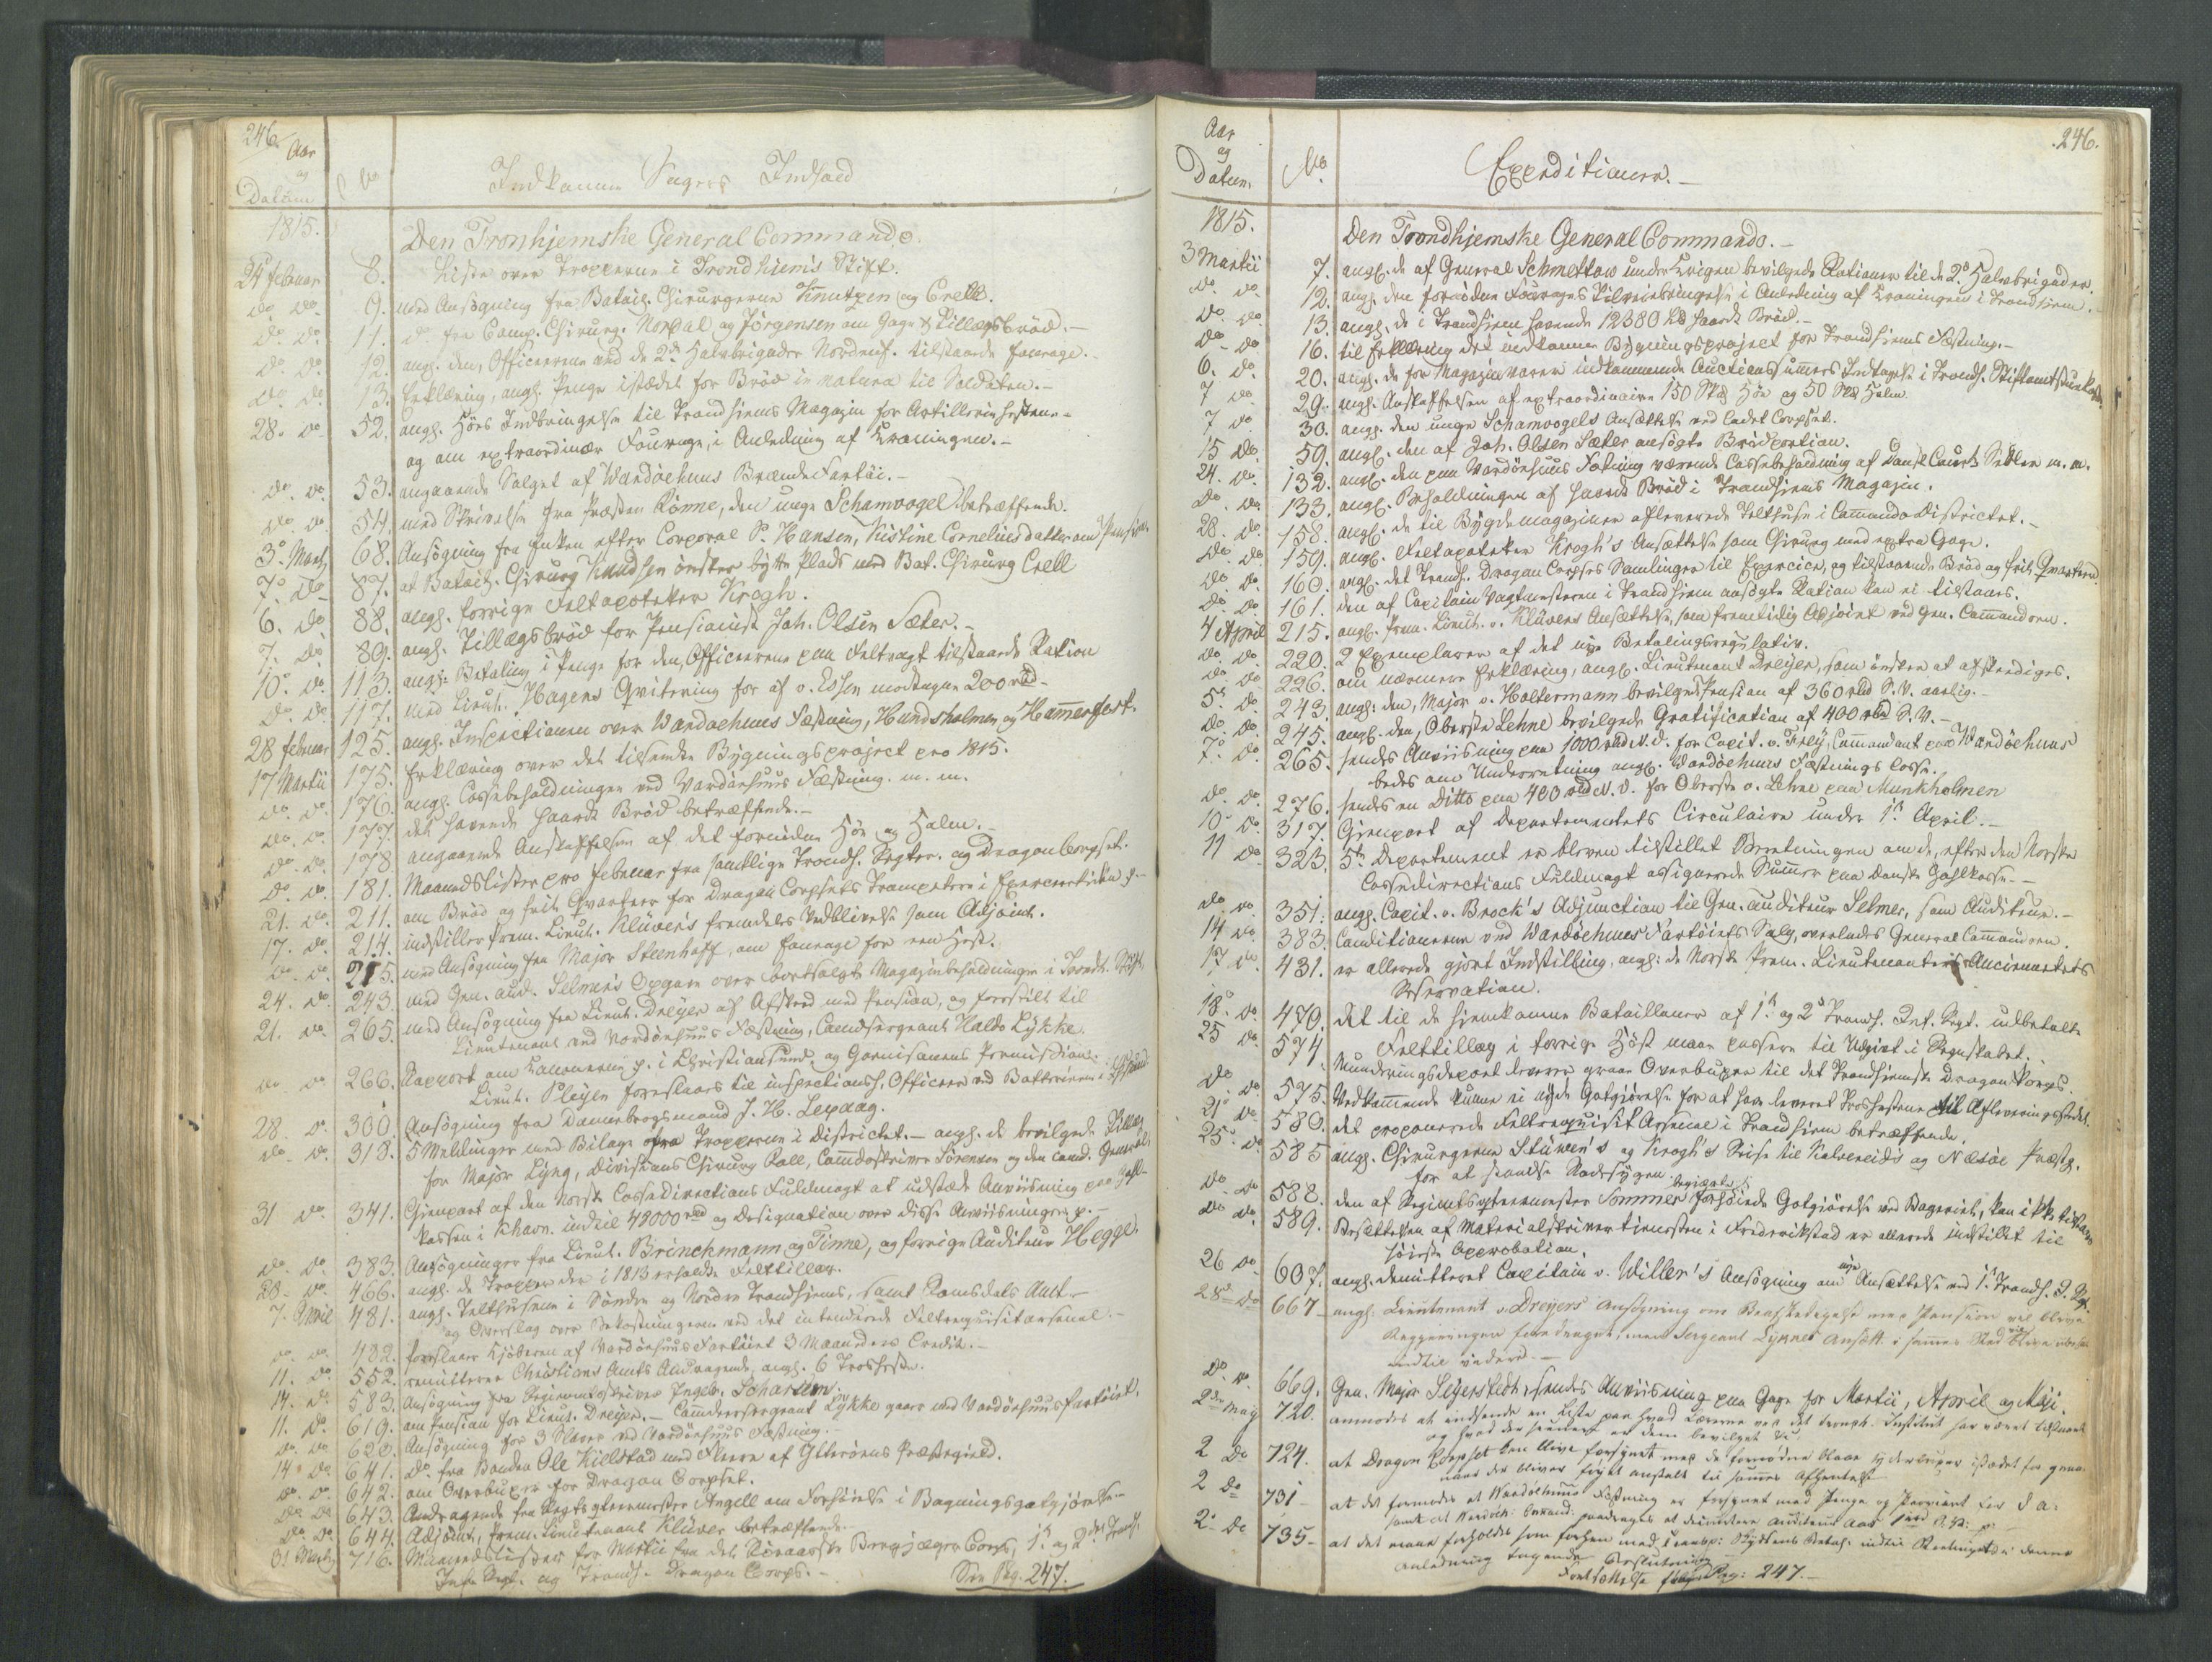 246.
Aar
og
Datum
No
Indkomne Sagers Indhold
1815.
Den Tronhjemske General Commando.
24 Februar 8. Liste over Tropperne i Trondhjems Stift.
do do 9. med Ansøgning fra Bataill. Chirurgerne Knutzen og Crell.
do do 11. do fra Comp. Chirurg. Nordal og Jörgensen om Gage & Tillægsbrød.
do do 12. angl. den, Officererne ved de 2de Halvbrigader Nordenf. tilstaaede Fourage.
do do 13. Erklæring, angl. Penge istædet for Brød in natura til Soldaten.
28. do 52. angl. Höes Indbringelse til Trondhjems Magazin for Artillerie Hestene
og om extraordinær Fourage, i Anledning af Kroningen.
do. do 53. angaaende Salget af Wardöehuus Brændefartöi.
do. do 54. med Skrivelse fra Præsten Rönne, den unge Schamvogel betræffende.
3. Marts 68. Ansøgning fra Enken efter Corporal P. Hansen, Kistine Corneliusdatter om Pension
7. do 87. at Bataill. Chirurg Knudsen ønsker bytte Plads med Bat. Chirurg Crell
6. do 88. angl. forrige Feltapoteker Krogh.
7. do 89. angl. Tillægsbrød for Pensionist Joh. Olsen Sæter.
10. do 113. angl. Betaling i Penge for den, Officererne paa Feltvagt tilstaaede Ration
do. do 117. med Lieut. Hagens Qvitering for af v. Essen modtagne 200 rbd
28 Februar 125. angl. Inspectionen over Wardoehuus Fæstning, Hundsholmen og Hammerfest.
17 Martii 175. Erklæring over det tilsendte Bygningsproject pro 1815.
do. do. 176. angl. Cassebeholdningen ved Vardöehuus Fæstning. m. m.
do. do. 177. det havende haarde Brød betræffende.
do. do. 178 angaaende Anskaffelsen af det fornödne Höe og Halm.
do. do. 181. Maanedslister pro Februar fra samtlige Trondh. Regter. og Dragon Corpset.
21. do. 211. om Brød og frit Qvarteer for Dragon Corpsets Trompetere i Exercertiden
17. do. 214. indstiller Prem. Lieut. Klüver's fremdeles Vedblivelse som Adjoint.
do. do. 215. med Ansøgning fra Major Steenhoff, om Fourage for een Hest.
24. do. 243. med Gen. Aud. Selmer's Opgave over bortsolgte Magazinbeholdninger i Trondh. Stift.
21. do. 265. med Ansøgning fra Lieut. Dreyer af Afskeed med Pension, og foreslilt til
Lieutenant ved Vardöehuus Fæstning, Comdsergeant Haldo Lykke.
do do 266. Rapport om Canonerne p. i Christiansund og Garnisonens Permission:
Lieut. Pleyen foreslaaes til inspectionsh. Officeer ved Batterierne i
28. do. 300. Ansøgning fra Dannebrogsmand J. H. Lexdag.
do do 318. 5 Meldinger med Bilage fra Tropperne i Districtet.— angl. de bevilgede Tillæg
for Major Lyng, Divisions Chirurg Rall, Comdoskriver Sörensen og den cand.
31 do 341. Gjenpart af den Norske Cassedirections Fuldmagt at udstæde Anviisning paa Zahl-
Kassen i Khavn. indtil 48000 rbd og Designation over disse Anviisninger p.
do. do. 383. Ansøgninger fra Lieut. Brinckmann og Tinne, og forrige Auditeur Hegge.
28. do. 466. angl. de Tropper der i 1813 erholdte Felttillæg.
7. April 481. angl. Telthusene i Søndre og Nordre Trondhjems, samt Romsdals Amt
og Overslag over Bekostningerne ved det intenderede Feltrequisitarsenal.
do. do. 482. foreslaaer Kjöberen af Vardöehuus Fartöiet 3 Maaneders Credit.
11. do. 552. remitterer Christians Amts Andragende, angl. 6 Trosheste.
14. do. 583. Ansøgning fra Regimentsskriver Ingebr. Scharum.
11. do. 619. om Pension for Lieut. Dreyer.— Comdeersergeant Lykke gaaer med Vardöehuus Fartöiet.
do. do 620. Ansøgning for 3 Slaver ved Vardöehuus Fæstning.
14 do 641. do. fra Bonden Ole Hillstad med Fleere af Ytteröens Præstegield.
do. do. 642. om Overbuxer for Dragon Corpset.
do. do. 643. Andragende fra Regtsqteermester Angell om Forhöielse i Bagningsgotgjörelse
do. do 644. Adjoint, Prem. Lieutenant Klüver betræffende
31 Marts 716. Maanedslister for Martii fra det Röraasske Bergjæger Corps, 1te og 2det Trondh.
Infe. Regt. og Trondh. Dragon Corps.—
See Pag. 247.
.246.
Aar
og
Datum
No.
Expeditioner.—
1815.
Den Trondhjemske General Commando.—
3 Martii 7. angl. de af General Schmettow under Krigen bevilgede Rationer til de 2de Halvbrigader.
do. do. 12. angl. den fornødne Fourages Tilveiebringelse i Anledning af Kroningen i Trondhiem.
do. do. 13. angl. de i Trondhjem havende 12380 lb haardt Brød.
do do 16. til Erklæring det indkomne Bygningsproject for Trondhjems Fæstning.
6. do. 20. angl. de for Magazinvarer indkommende Auctionssummers Indtægt i Trondh. Stiftamtstuekasse
7 do 29. angl. Anskaffelsen af extraordinaire 150 Skd Höe og 50 Skd Halm.
7 do. 30. angl. den unge Schamvogels Ansættelse ved Cadet Corpset.
15 do. 59. angl. den af Joh. Olsen Sæter ansøgte Brødportion.
24. do. 132. angl. den paa Vardöehuus Fæstning værende Cassebeholdning af Dansk Courts Sedler m. m.
do. do. 133. angl. Beholdningen af haardt Brød i Trondhjems Magazin.
28. do. 158. angl. de til Bygdemagaziner afleverede Telthuse i Commando Districtet.
do. do. 159. angl. Feltapoteker Krogh's Ansættelse som Chirurg med extra Gage.
do do 160. angl. det Trondh. Dragon Corpses Samlinger til Exercice, og tilstaaende Brød og frit Qvarteer
do. do. 161. den af Capitain Vagtmesteren i Trondhjem ansøgte Ration kan ei tilstaaes.
4 April 215. angl. Prem. Lieut. v. Klüvers Ansættelse, som fremtidig Adjoint ved Gen. Commandoen.
do. do. 220. 2 Exemplarer af det nye Betalingsregulativ.
do. do. 226. om nærmere Erklæring, angl. Lieutenant Dreyer, som ønsker at afskediges.
5. do. 243. angl: den, Major v. Holtermann bevilgede Pension af 360 rbd S. V. aarlig.
do. do. 245. angl. den, Oberste Lehne bevilgede Gratification af 400 rbd S. V.
7. do. 265. sendes Anviisning paa 1000 rbd N. V. for Capit. v. Frey, Commandant paa Wardöehuus
bedes om Underretning angl. Wardoehuus Fæstnings Casse.
do. do. 276. sendes en Ditto paa 400 rbd N. V. for Oberste v. Lehne paa Munkholmen
10 do. 317. Gjenpart af Departementets Circulaire under 1te April.
11 do 323. 5te Departement er bleven tilstillet Beretningen om de, efter den Norske
Cassedirections Fuldmagt assignerede Summer paa Danske Zahlkasse.
do. do 351. angl. Capit. v. Brock's Adjunction til Gen. Auditeur Selmer, som Auditeur.
14 do. 383. Conditionerne ved Wardöehuus Fartöiets Salg, overlades General Commandoen.
17 do. 431. er allerede gjort Indstilling, angl: de Norske Prem. Lieutenanters Anciennetets
Reservation.
18. do. 470. det til de hjemkomne Batailloner af 1te og 2det Trondh. Inf. Regt. udbetalte
Felttillæg i forrige Höst maae passere til Udgivt i Regnskabet.
25 do. 574. Munderingsdepotet leverer graae Overbuxer til det Trondhjemske Dragon Korps.
do do. 575. Vedkommende kunne ei nyde Gotgjörelse for at have leveret Trosshestene til Afleveringsstedet.
21 do 580. det proponerede Feltrequisit Arsenal i Trondhiem betræffende.
25. do 585 angl. Chirurgerne Stüwer's og Krogh's Reise til Kalvereidis og Næsöe Præstg.
for at standse Radesygen.
do do 588. den af Regimtsqteermester Sommer begjærte forhöiede Gotgjörelse ved Bageriet, kan ikke tilstaaes
do do. 589. Besættelsen af Materialskrivertjenesten i Frederikstad er allerede indstillet til
höieste Approbation.
26 do 607. angl. demitteret Capitain v. Willer's Ansøgning om nye Ansættelse ved 1te Trondh. I. Rgt.
28de do 667 angl. Lieutenant v. Dreyers Ansøgning om Bortskedigelse med Pension vil blive
Regjeringen foredraget, men Sergeant Lykkes Ansætt. i hannes Sted vil blive
indtil videre.
do. do. 669. Gen. Major Seyerstedt, sendes Anviisning paa Gage for Martii, April og Maji.
2den May 720. anmodes at indsende en Liste paa hvad Lærerne ved det tronh. Institut har været tilstaaet
og hvad der senere er dem bevilget
2 do 724. at Dragon Corpset kan blive forsynet med de fornødne blaae Ryderbuxer istædet for graae
naar der bliver föyet anstalt til sammes Afhentelse
2 do 731 at det formodes at Wardöehuus Fæstning er forsynet med Penge og Proviant for d A:
samt at Wardöh: Command: paadrages at demittere Auditeur
2. do 735 at det maae forholdes som forhen med
anledning tagende Beslutning
Fortsættelse følger Pag: 247.—